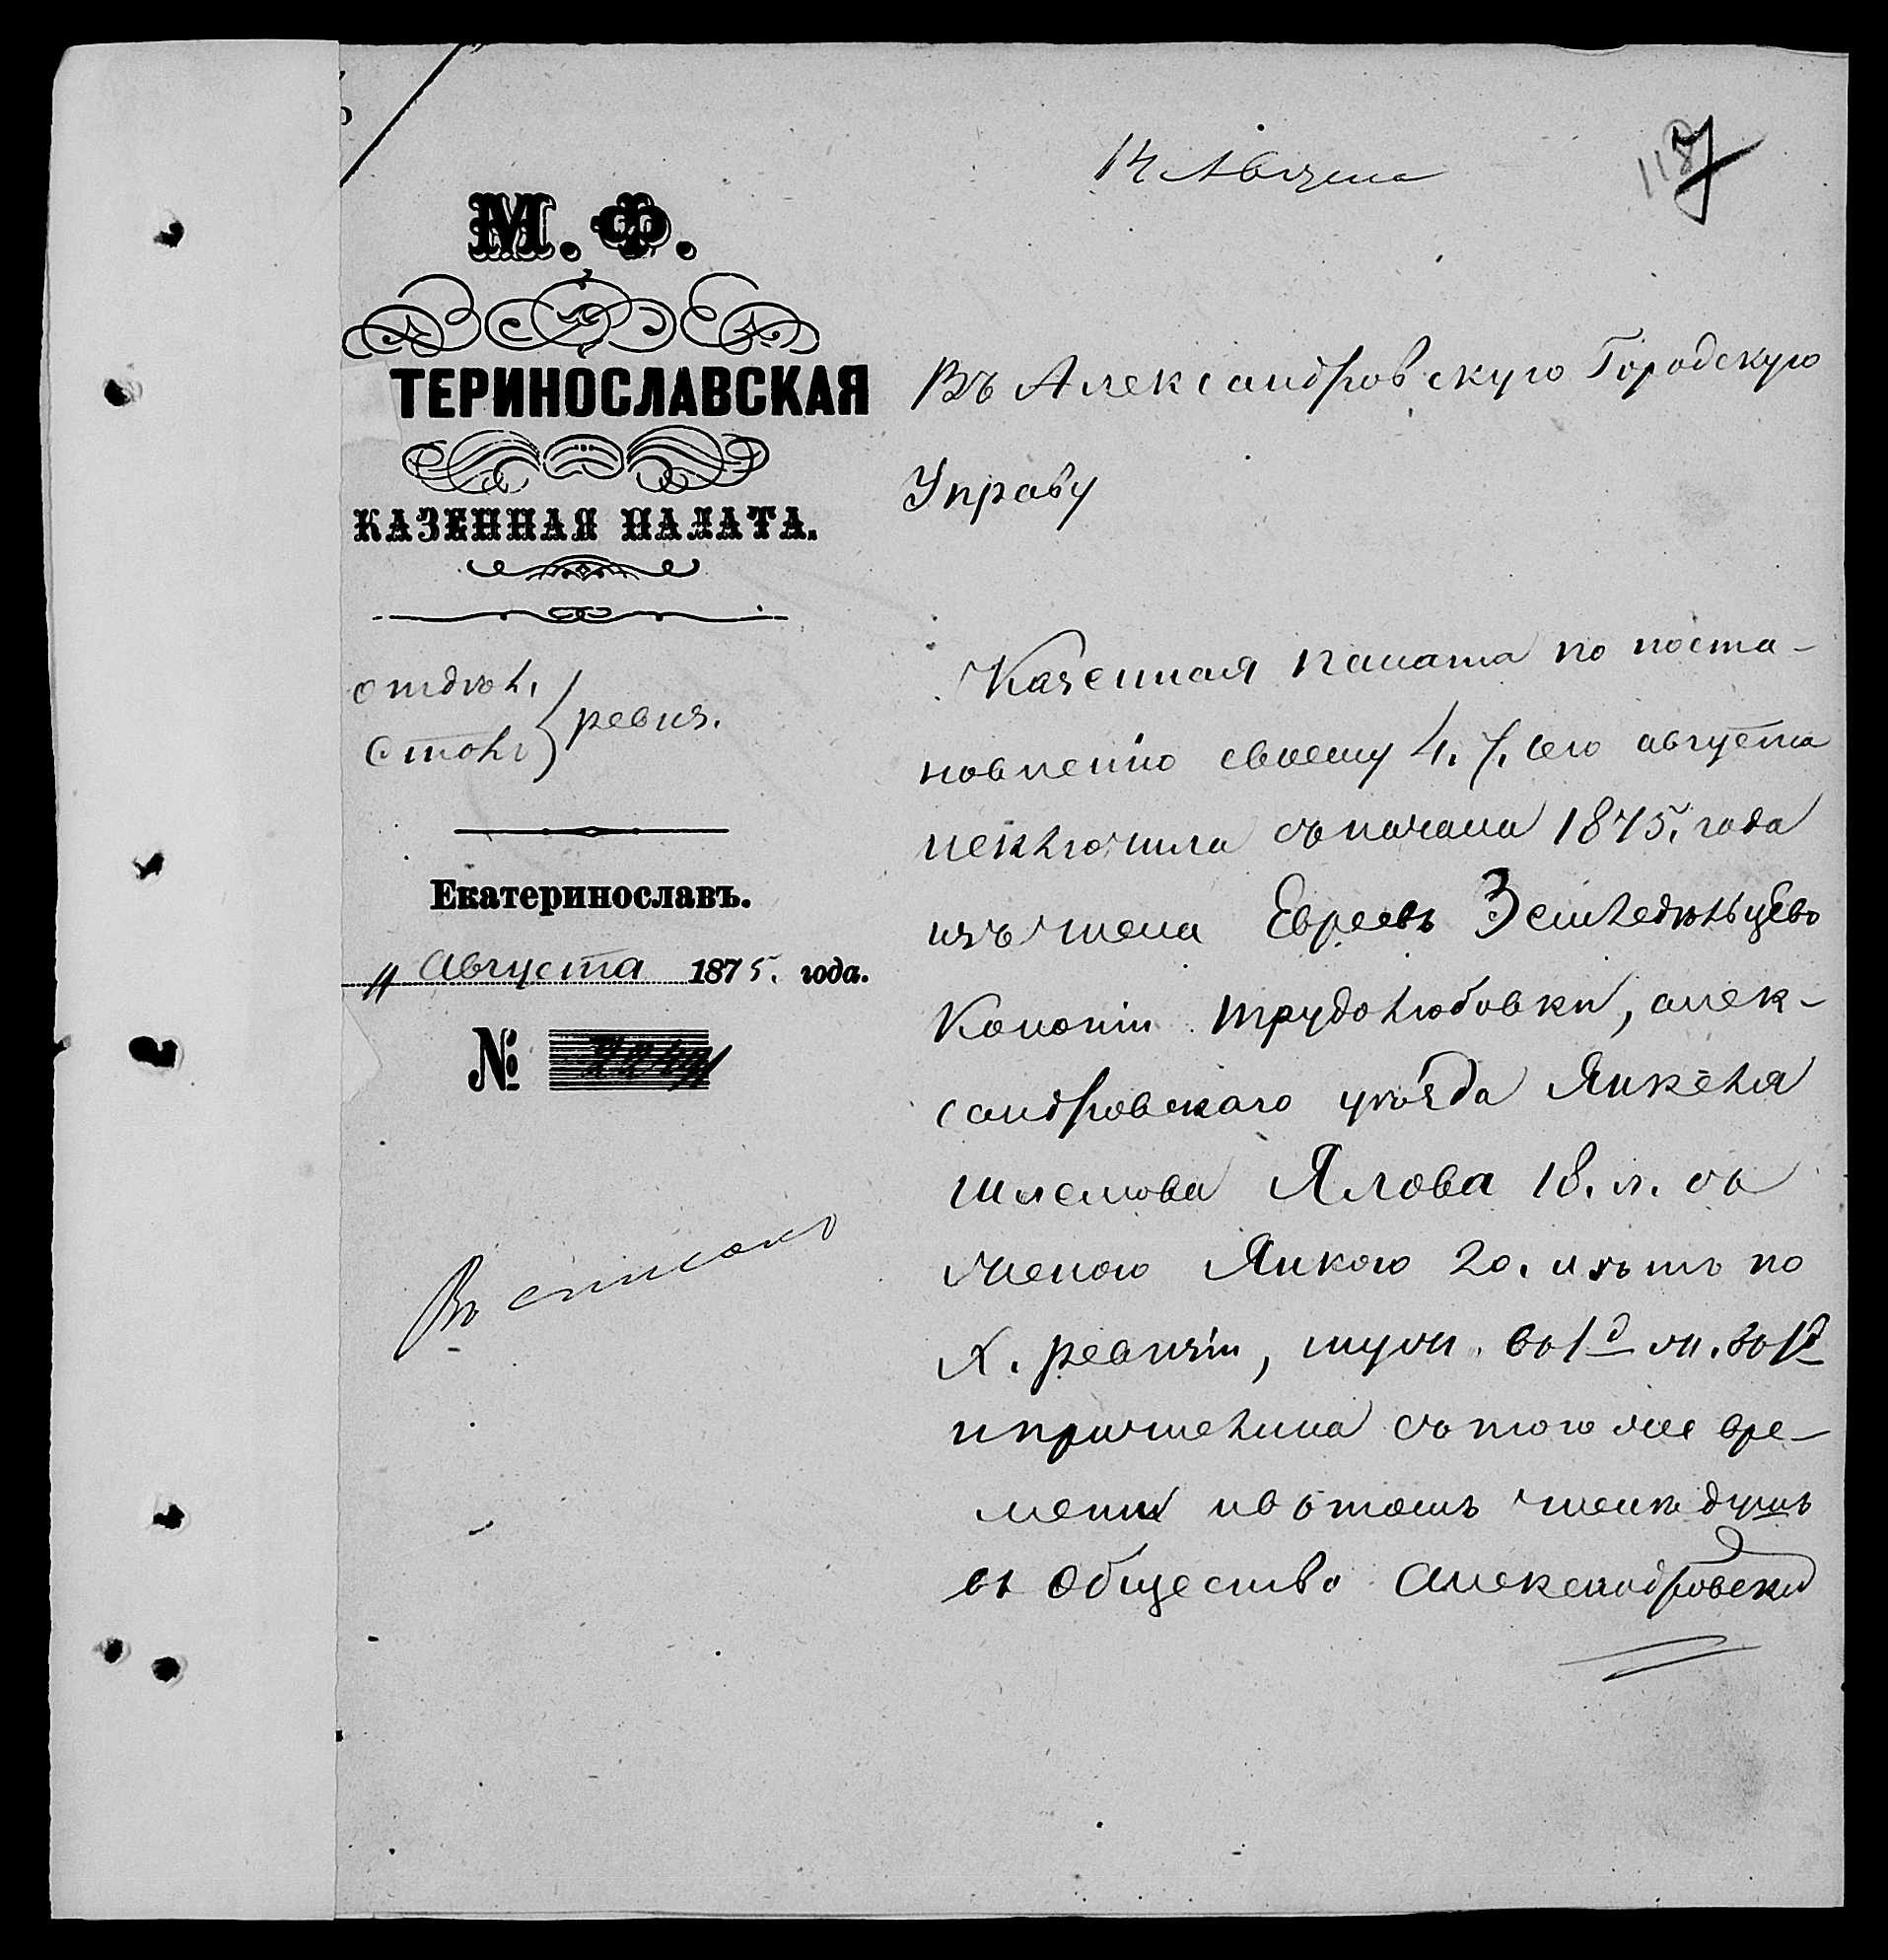 14 Августа
118
7
М. Ф.
ТЕРИНОСЛАВСКАЯ
КАЗЕННАЯ ПАЛАТА.
отдѣл.
Столъ } ревиз.
Екатеринославъ.
11 Августа 1875. года.
№
Въ списокъ
Въ Александровскую Городскую
Управу
Казенная палата по поста-
новленію своему 4. ч. сего августа
исключила съ начала 1875. года
изъ числа Евреевъ Земледѣльцевъ
Колоніи Трудолюбовки, алек-
сандровскаго уѣзда Янкеля
Шлемова Ялова 18. л. съ
женою Янкою 20. лѣтъ по
X. ревизіи, муж. въ 1й ж. въ 1й
и причислила съ того же вре-
мени и въ томъ числѣ душъ
въ Общество Александровски